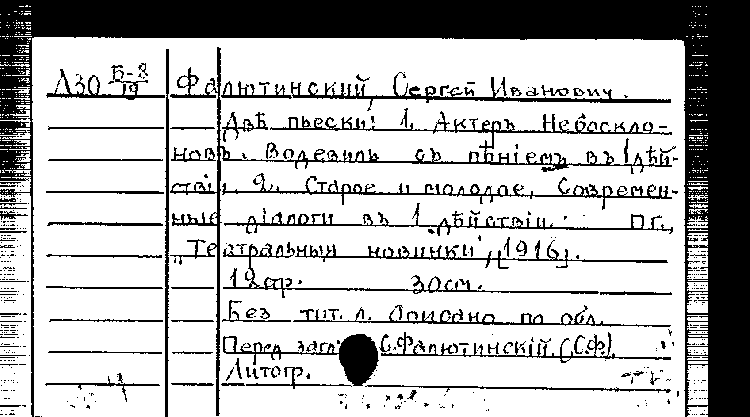 Л30 Б-8/19 Фалютинский, Сергей Иванович.
Двѣ пьески: 1. Актеръ Небоскло-
новъ. Водевиль съ пѣніемъ въ 1 дѣй-
ствіи, 2. Старое и молодое, Современ-
ные діалоги въ 1 дѣйствіи. ПГ.,
„Театральныя новинки", [1916].
12 стр. 30 см.
Без тит. л. Описано по обл.
Перед загл. С.Фалютинскій. (С.Ф).
Литогр.